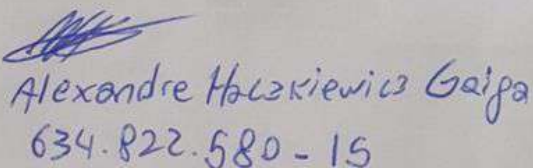 Alexandre Haczkiewicz Gaiga
634.822.580-15